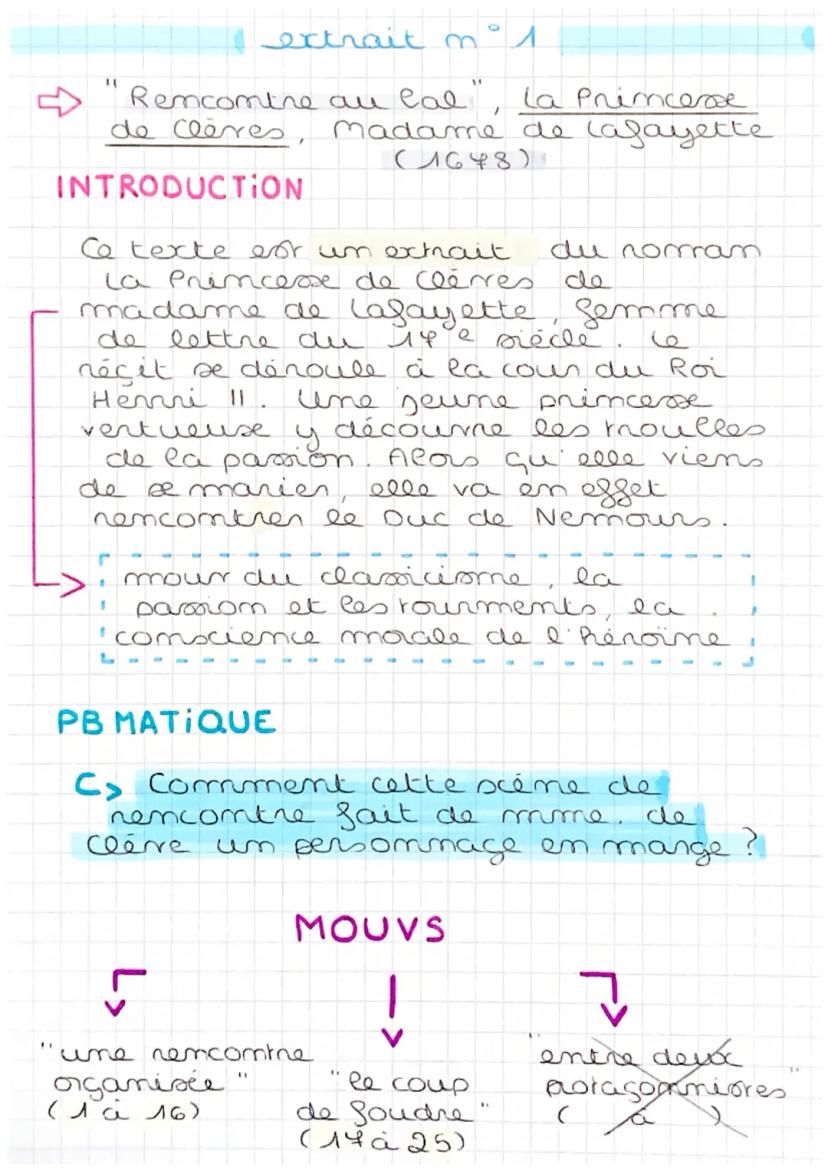 extrait n°1
"Rencontre au bal", La Princesse
de Clèves, Madame de Lafayette
(1678)
INTRODUCTION
Ce texte est un extrait du romran
La Princesse de Clèves de
madame de Lafayette, femme
de lettre du 17e siècle. Le
récit se déroule à la cour du Roi
Henri II. Une jeune princesse
vertueuse y découvre les troubles
de la passion. Alors qu'elle viens
de se marier, elle va en effet
rencontrer le Duc de Nemours.
mour du classicisme, la
passion et les tourments, la
conscience morale de l'héroïne
PB MATIQUE
Comment cette scène de
rencontre fait de mme. de
Clève un personnage en marge ?
MOUVS
"une rencontre
organisée"
(1 à 16)
"le coup
de foudre"
(17 à 25)
"entre deux
protagonnistes"
( à )